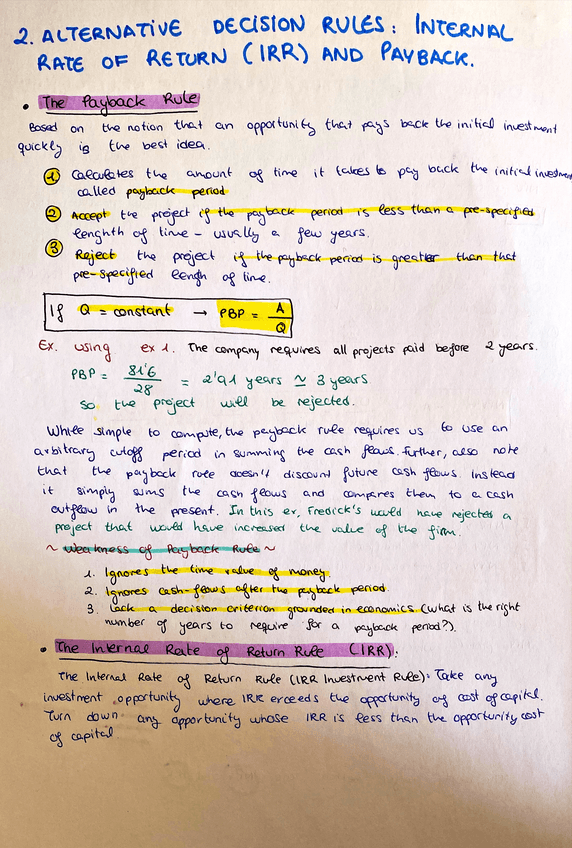 2. ALTERNATIVE DECISION RULES: INTERNAL
RATE OF RETURN (IRR) AND PAYBACK.
• The Payback Rule
Based on the notion that an opportunity that pays back the initial investment
quickly is the best idea.
1 Calculates the amount of time it takes to pay back the initial investment
called payback period
2 Accept the project if the payback period is less than a pre-specified
lenghth of time - usually a few years.
3 Reject the project if the payback period is greater than that
pre-specified lengh of time.
If Q = constant → PBP = A/Q
Ex. using ex 1. The company requires all projects paid before 2 years.
PBP = 81'6/28 = 2'91 years ≃ 3 years
so the project will be rejected.
While simple to compute, the payback rule requires us to use an
arbitrary cutoff period in summing the cash flows. further, also note
that the payback rule doesn't discount future cash flows. Instead
it simply sums the cash flows and compares them to a cash
outflow in the present. In this ex, Fredick's would have rejected a
project that would have increased the value of the firm.
~ Weakness of Payback Rule ~
1. Ignores the time value of money.
2. Ignores cash-flows after the payback period.
3. Lack a decision criterion grounded in economics. (what is the right
number of years to require for a payback period?).
• The Internal Rate of Return Rule (IRR):
The Internal Rate of Return Rule (IRR Investment Rule): Take any
investment opportunity where IRR exceeds the opportunity of cost of capital.
Turn down any opportunity whose IRR is less than the opportunity cost
of capital